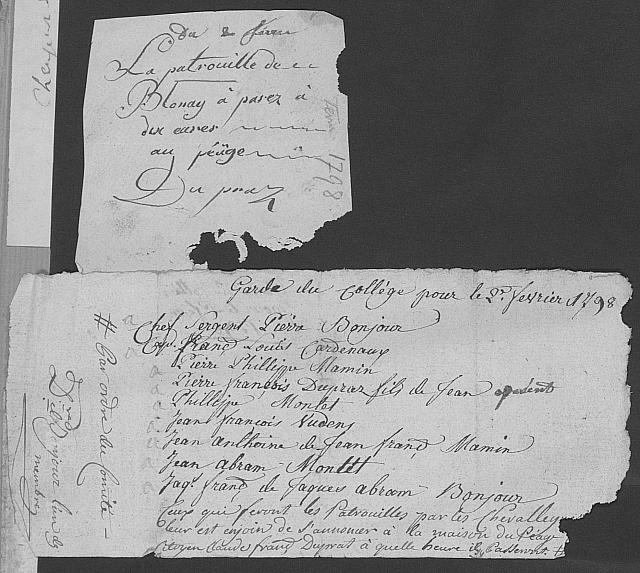 Du 2 fevrier
La patrouille de
Blonay à pasez à
dix eures
au péage
Du praz
1798
Garde du Collége pour le 2.e fevrier 1798
Chef Sergent Pierre Bonjour
Cap. franç Louis Cardenaux
Pierre Phillippe Mamin
Pierre françois Dupraz fils de Jean apsent
Phillippe Montet
Jean françois Budens
Jean Anthoine de Jean franç Mamin
Jean abram Montet
Jaq. franç de Jaques abram Bonjour
Ceux qui feront les Patrouilles par les Chevalley
leur est enjoin de s'annoncer à la maison du Péage
Citoyen Claude franç Duprat à quelle heure ils Passeront #
# Par ordre du Comité
Bonjour l'un des
membres